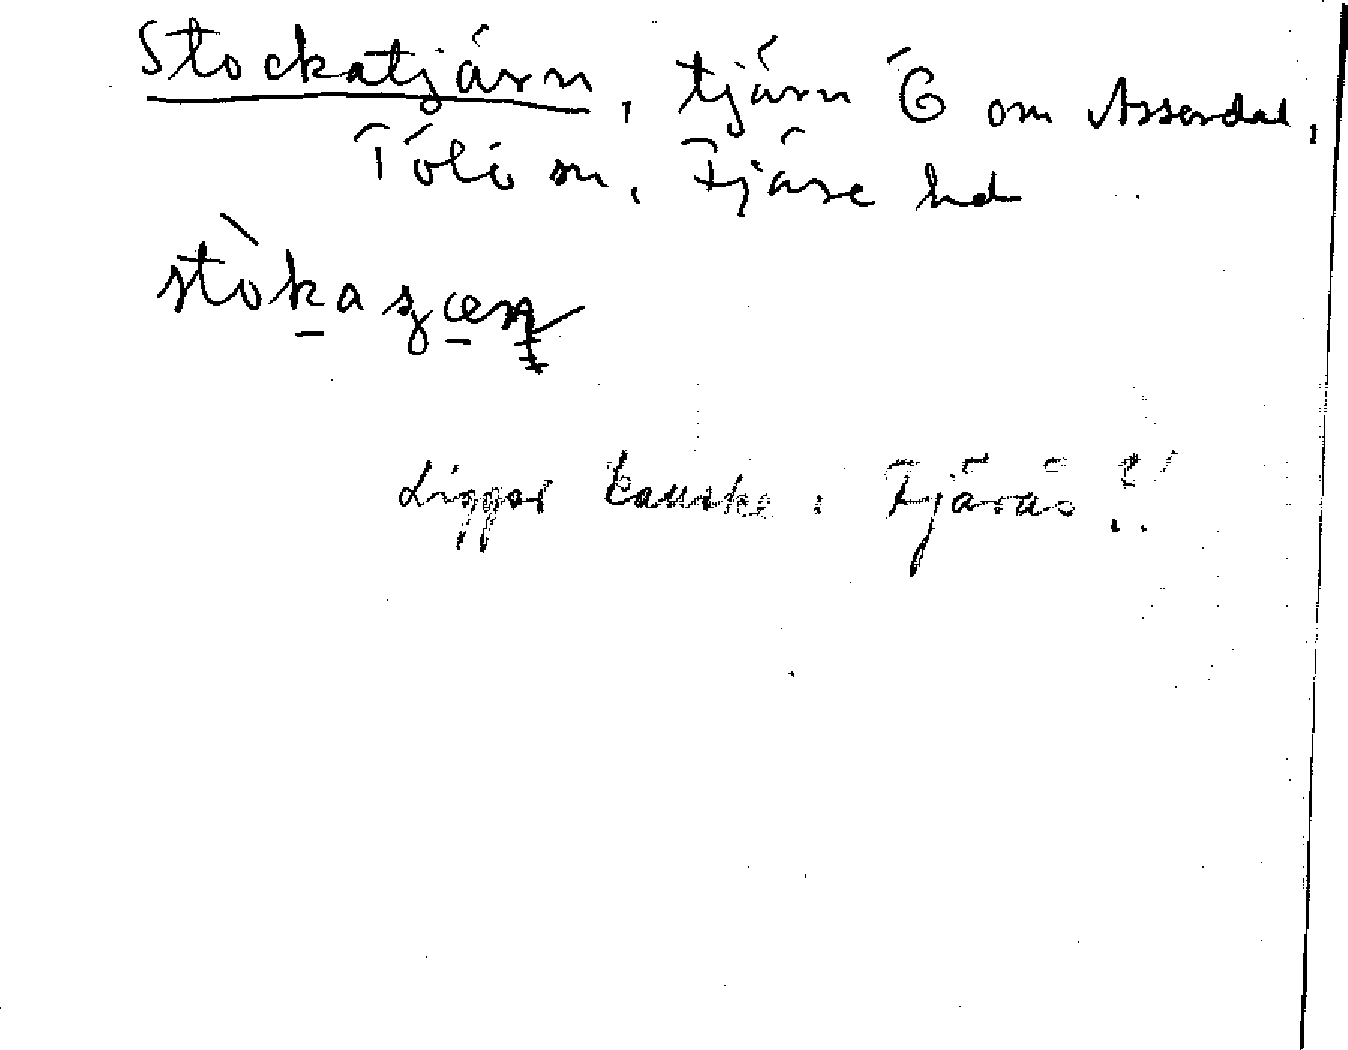 Stockatjärn, tjärn Ö om Asserdal,
Tölö sn, Fjäre hd
Ligger kanske i Fjärås?!